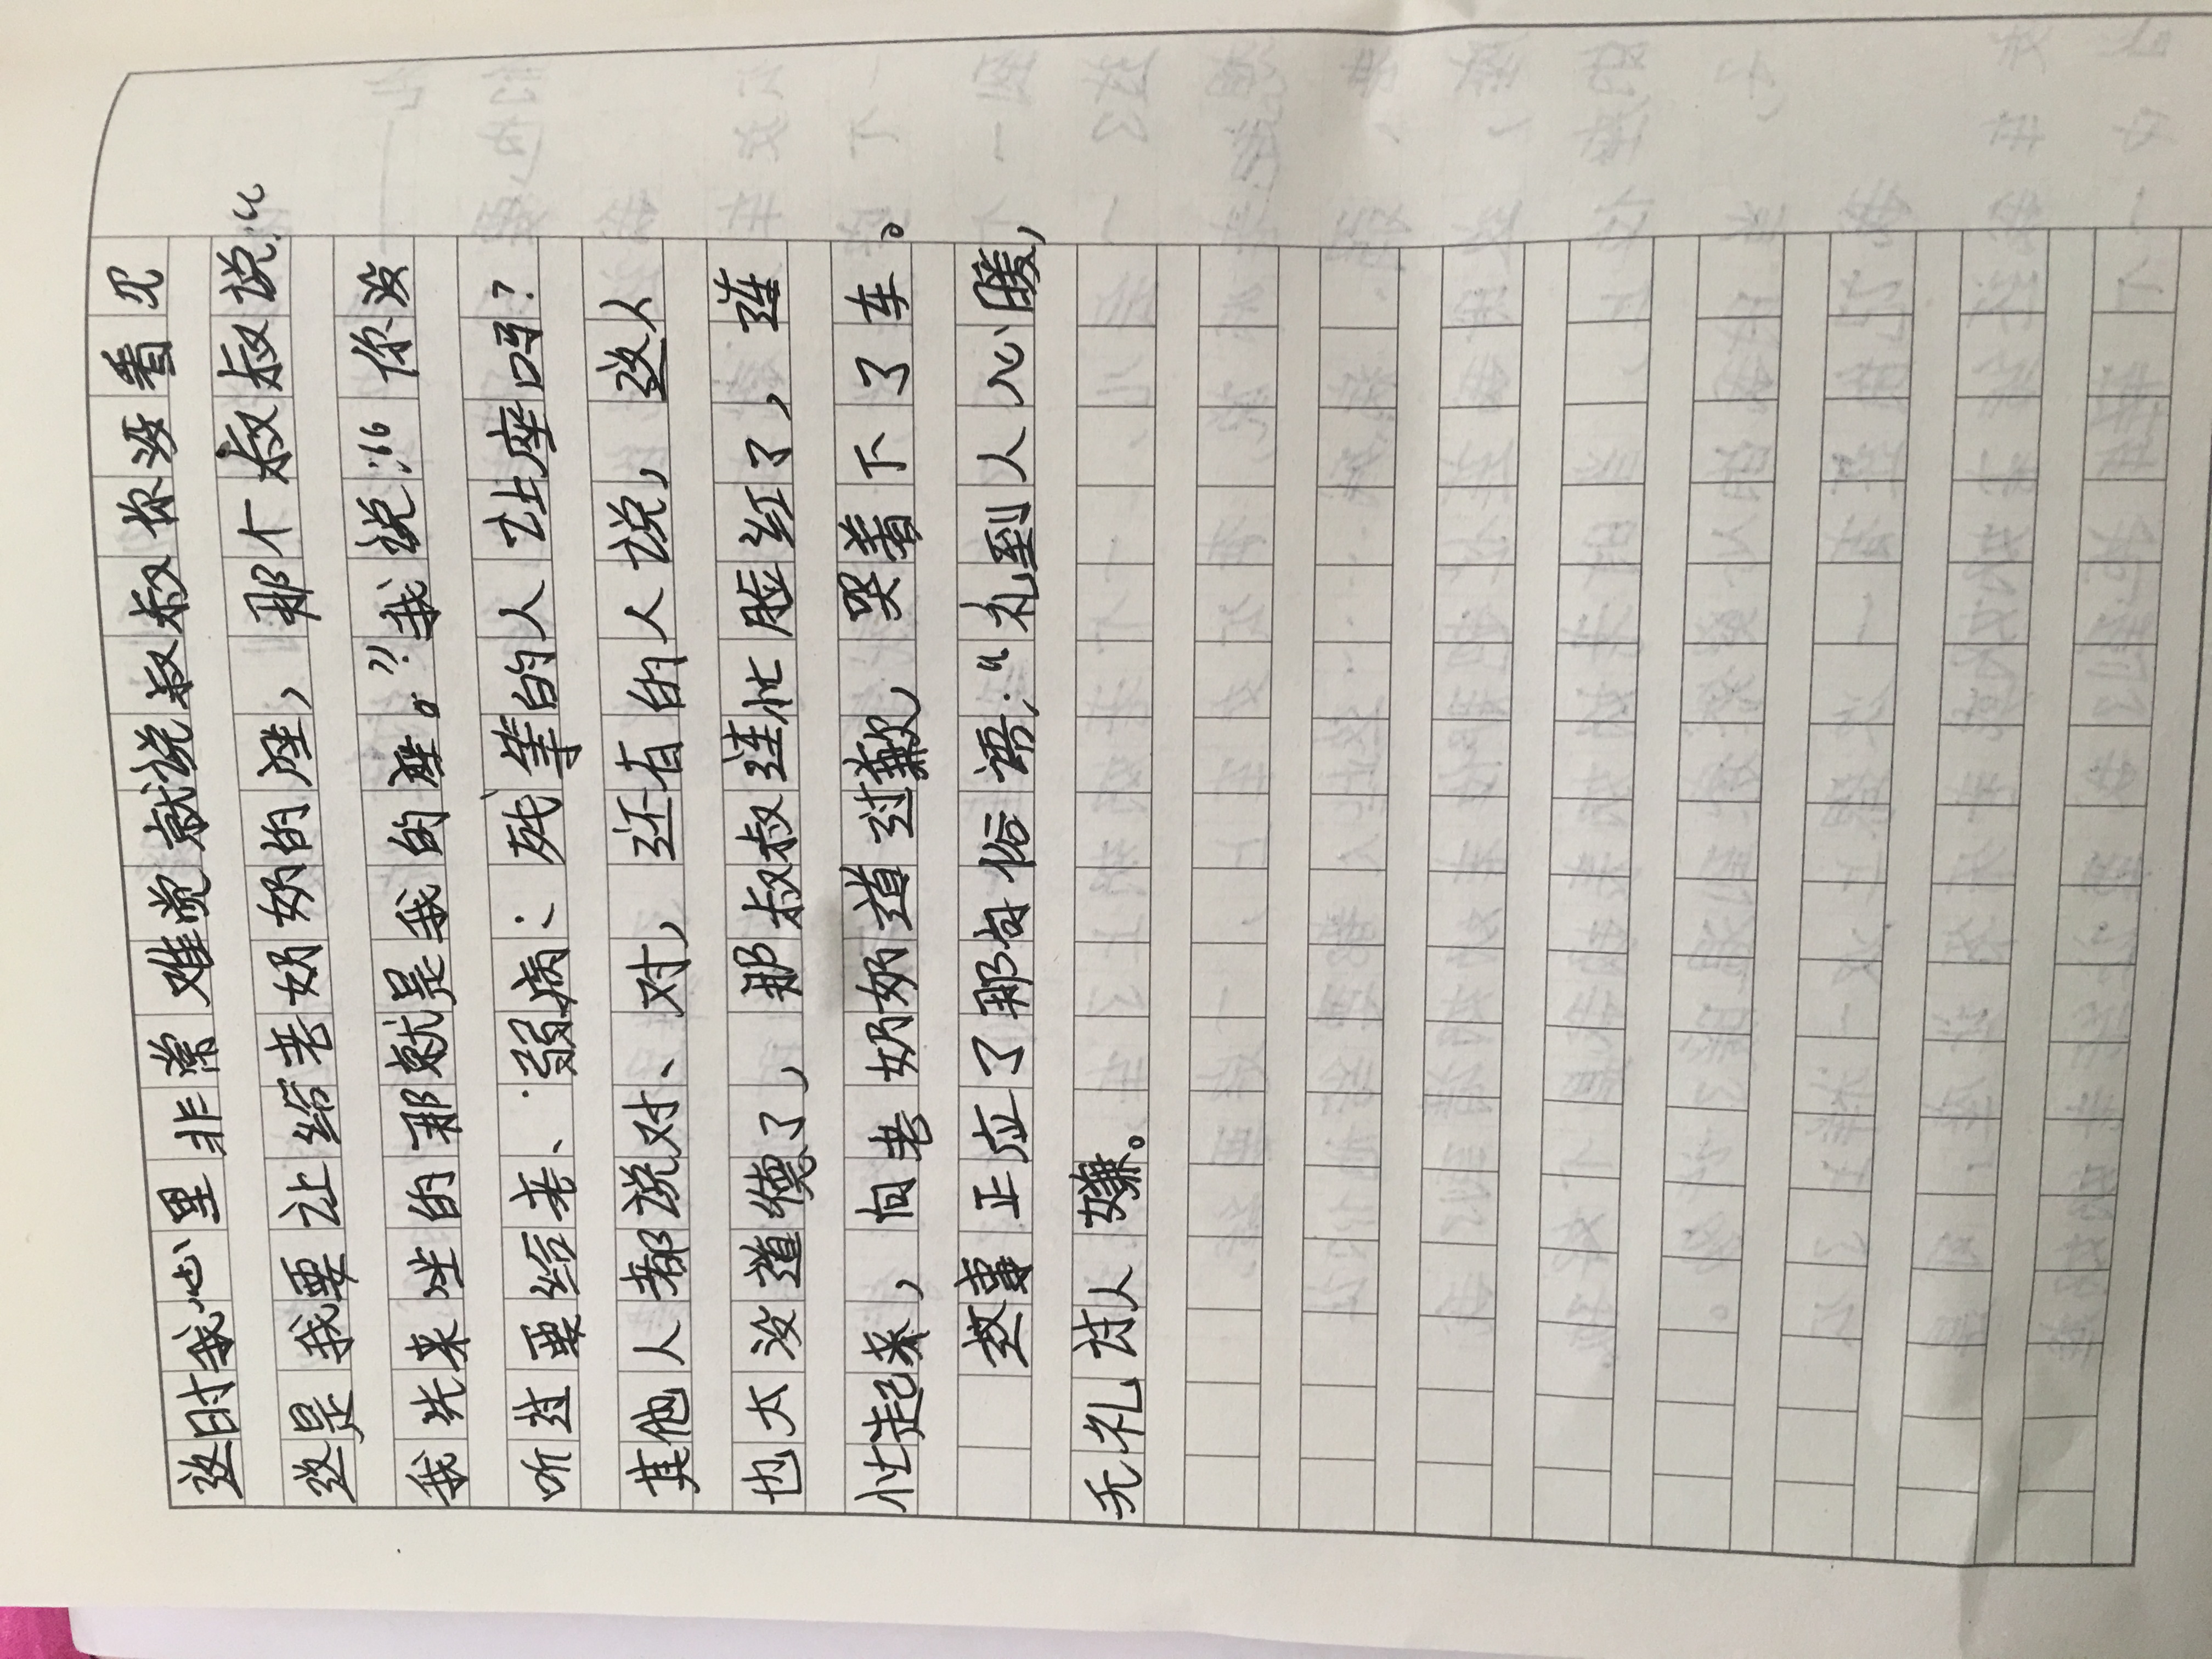 这时我心里非常难觉就说叔叔你没看见
这是我要让给老奶奶的座，那个叔叔说：“
我先来坐的那就是我的座。”我说：“你没
听过要给老、弱病：残等的人让座吗？
其他人都说对、对，还有的人说，这人
也太没道德了，那叔叔连忙脸红了，连
忙起来，向老奶奶道过歉，哭着下了车。
故事正应了那句俗语：“礼到人心暖，
无礼讨人嫌。